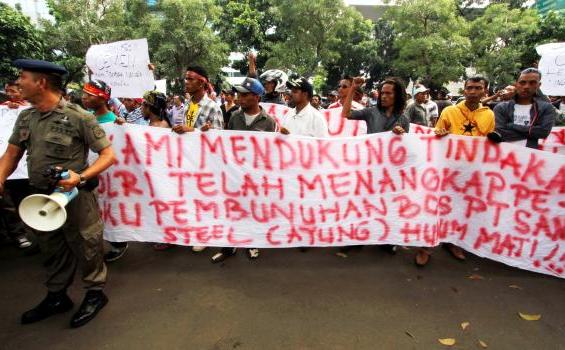 AMI MENDUKUNG TINDAKA
OLRI TELAH MENANGKAP PE
KU PEMBUNUHAN BOS PT SAN
STEEL (AYUNG) HUKUM MATI!!!